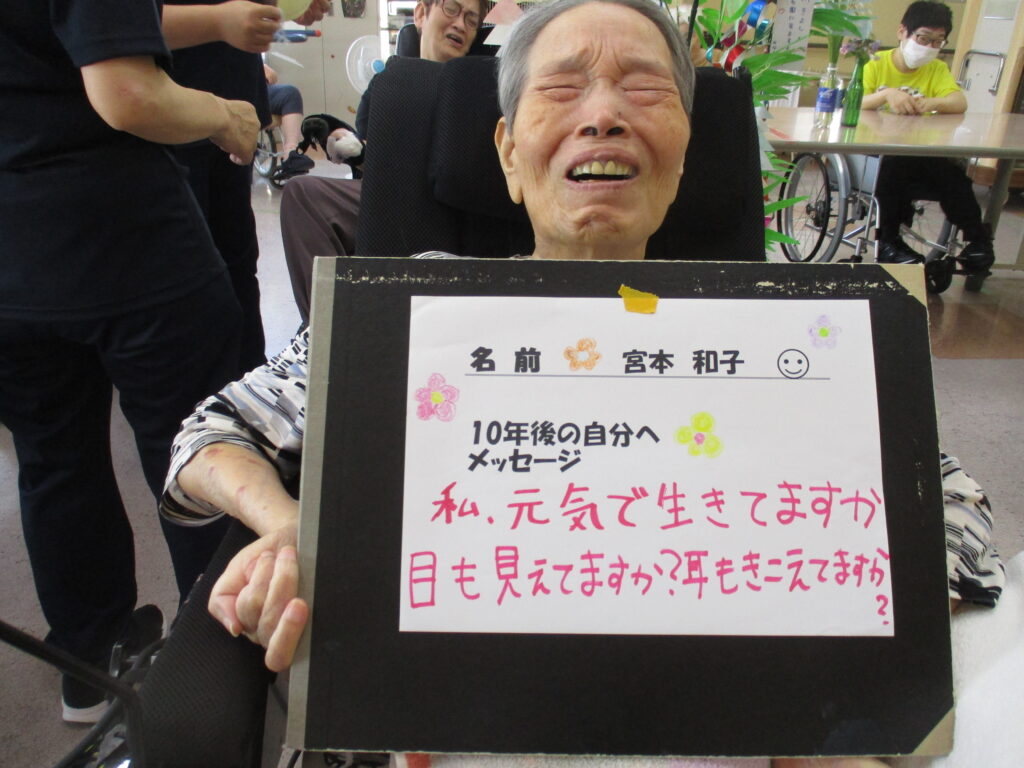 名 前 宮本 和子
10年後の自分へ
メッセージ
私、元気で生きてますか
目も見えてますか?耳もきこえてますか
?